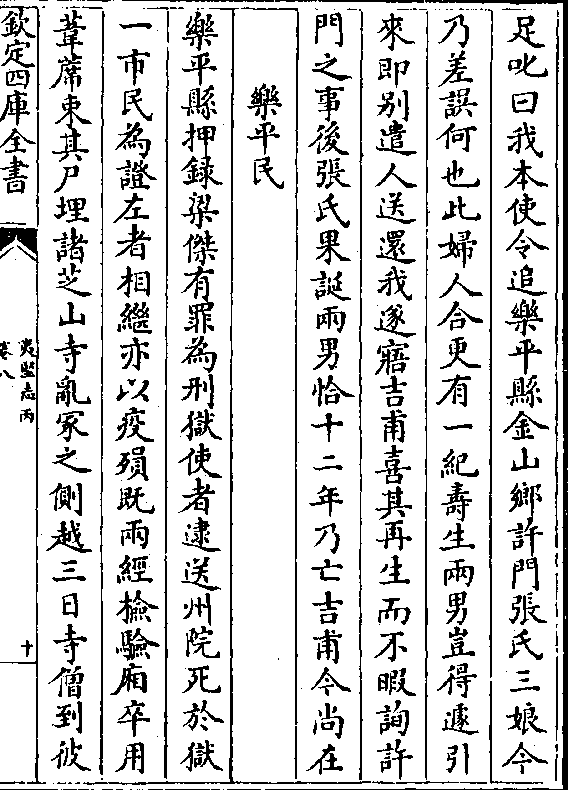 足叱曰我本使令追樂平縣金山鄉許門張氏三娘今
乃差誤何也此婦人合更有一紀壽生兩男豈得遽引
來即别遣人送還我遂寤吉甫喜其再生而不暇詢許
門之事後張氏果誕兩男恰十二年乃亡吉甫今尚在
樂平民
樂平縣押録梁傑有罪為刑獄使者逮送州院死於獄
一市民為證左者相繼亦以疫殞既兩經檢驗廂卒用
葦蓆束其尸埋諸芝山寺亂冢之側越三日寺僧到彼
欽定四庫全書
夷堅志丙
卷八
十